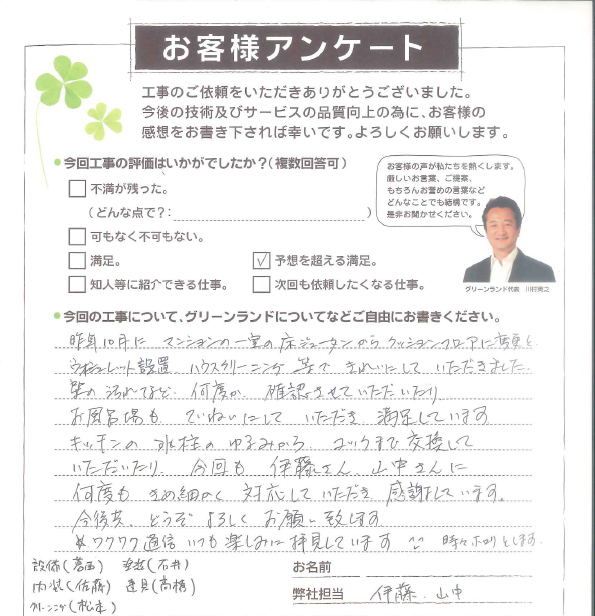 お客様アンケート
工事のご依頼をいただきありがとうございました。
今後の技術及びサービスの品質向上の為に、お客様の
感想をお書き下されば幸いです。よろしくお願いします。
今回工事の評価はいかがでしたか？（複数回答可）
不満が残った。
（どんな点で？：　）
可もなく不可もない。
満足。
予想を超える満足。
知人等に紹介できる仕事。
次回も依頼したくなる仕事。
お客様の声が私たちを熱くします。
厳しいお言葉、ご提案、
もちろんお誉めの言葉など
どんなことでも結構です。
是非お聞かせください。
グリーンランド代表　川村英之
今回の工事について、グリーンランドについてなどご自由にお書きください。
昨年10月に マンションの一室の床ジュータンから クッションフロアに変更と
ウォシュレット設置 ハウスクリーニング 等で きれいにして いただきました.
壁の 汚れなど、何度か 確認させていただいたり
お風呂場も ていねいにして いただき 満足しています
キッチンの 水栓の ゆるみから、コックまで 交換して
いただいたり、今回も 伊藤さん、山中さんに
何度も きめ細かく 対応して いただき 感謝しています。
今後共、どうぞ よろしく お願い致します
ワクワク通信 いつも 楽しみに 拝見しています 時々ホロリとします.
設備(葛西) 電気(石井)
内装(佐藤) 建具(高橋)
クリーニング(松本)
お名前
弊社担当 伊藤、山中